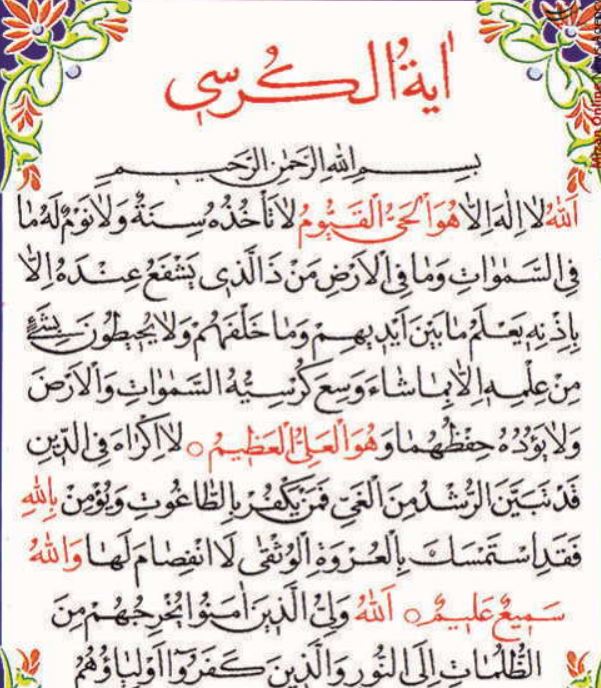 اٰيَةُ الْكُرْسِي
بِسْمِ اللّٰهِ الرَّحْمٰنِ الرَّحيمِ
اَللّٰهُ لَا اِلٰهَ اِلَّا هُوَ الْحَيُّ الْقَيُّومُ لَا تَأْخُذُهُ سِنَةٌ وَلَا نَوْمٌ لَهُ مَا
فِي السَّمٰوَاتِ وَمَا فِي الْاَرْضِ مَنْ ذَا الَّذي يَشْفَعُ عِنْدَهُ اِلَّا
بِاِذْنِه يَعْلَمُ مَا بَيْنَ اَيْديهِمْ وَمَا خَلْفَهُمْ وَلَا يُحيطُونَ بِشَيْءٍ
مِنْ عِلْمِه اِلَّا بِمَا شَاءَ وَسِعَ كُرْسِيُّهُ السَّمٰوَاتِ وَالْاَرْضَ
وَلَا يَؤُدُهُ حِفْظُهُمَا وَهُوَ الْعَلِيُّ الْعَظيمُ ○ لَا اِكْرَاهَ فِي الدّينِ
قَدْ تَبَيَّنَ الرُّشْدُ مِنَ الْغَيِّ فَمَنْ يَكْفُرْ بِالطَّاغُوتِ وَيُؤْمِنْ بِاللّٰهِ
فَقَدِ اسْتَمْسَكَ بِالْعُرْوَةِ الْوُثْقٰى لَا انْفِصَامَ لَهَا وَاللّٰهُ
سَميعٌ عَليمٌ ○ اَللّٰهُ وَلِيُّ الَّذينَ اٰمَنُوا يُخْرِجُهُمْ مِنَ
الظُّلُمَاتِ اِلَى النُّورِ وَالَّذينَ كَفَرُوا اَوْلِيَاؤُهُمُ
Mizan Online News Agency